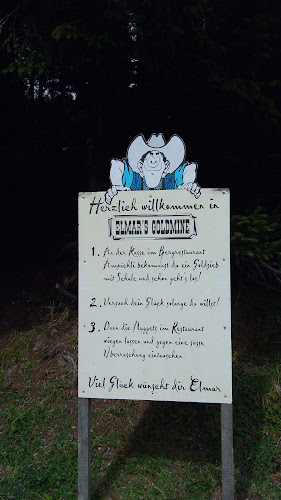 Herzlich willkommen in
ELMAR'S GOLDMINE
1. An der Kasse im Bergrestaurant
Ämpächli bekommst du ein Goldsieb
mit Schale und schon geht's los!
2. Versuch dein Glück solange du willst!
3. Dann die Nuggets im Restaurant
wiegen lassen und gegen eine süsse
Überraschung eintauschen.
Viel Glück wünscht dir Elmar